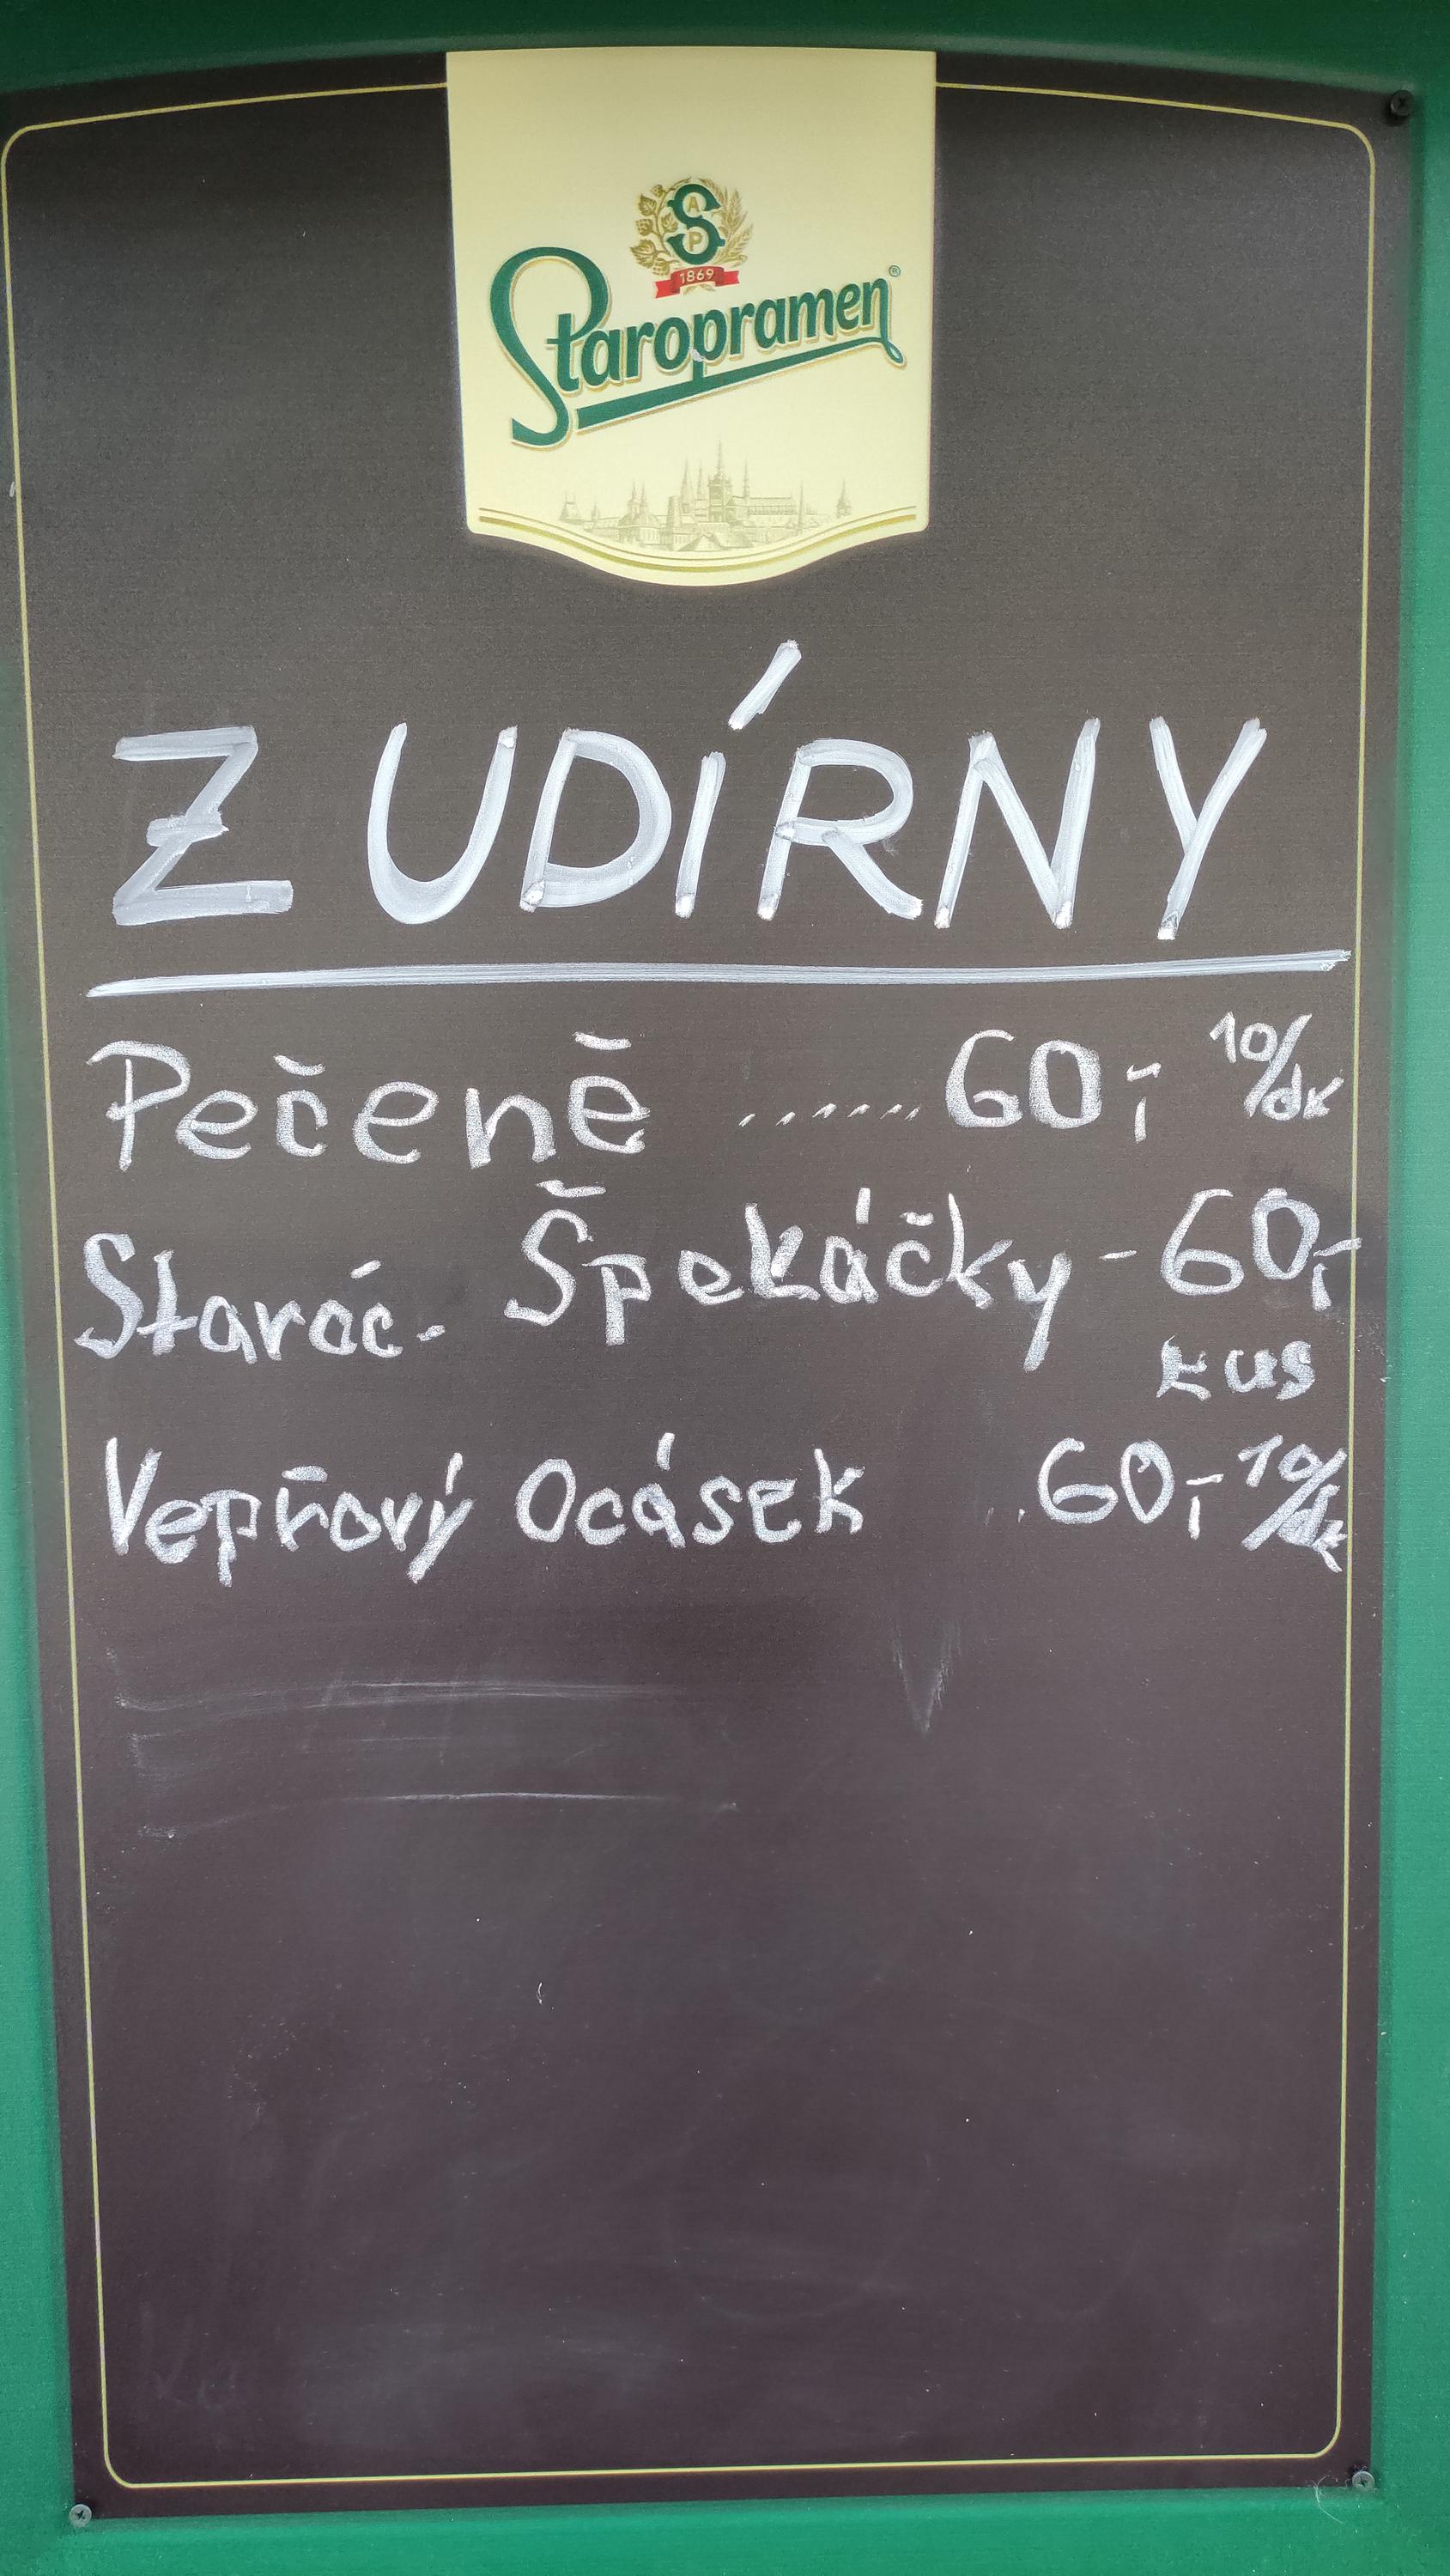 S
A
P
1869
Staropramen®
Z UDÍRNY
Pečeně ....... 60,- 10/dk
Staroč. Špekáčky - 60,-
kus
Vepřový Ocásek .. 60,- 10/dk